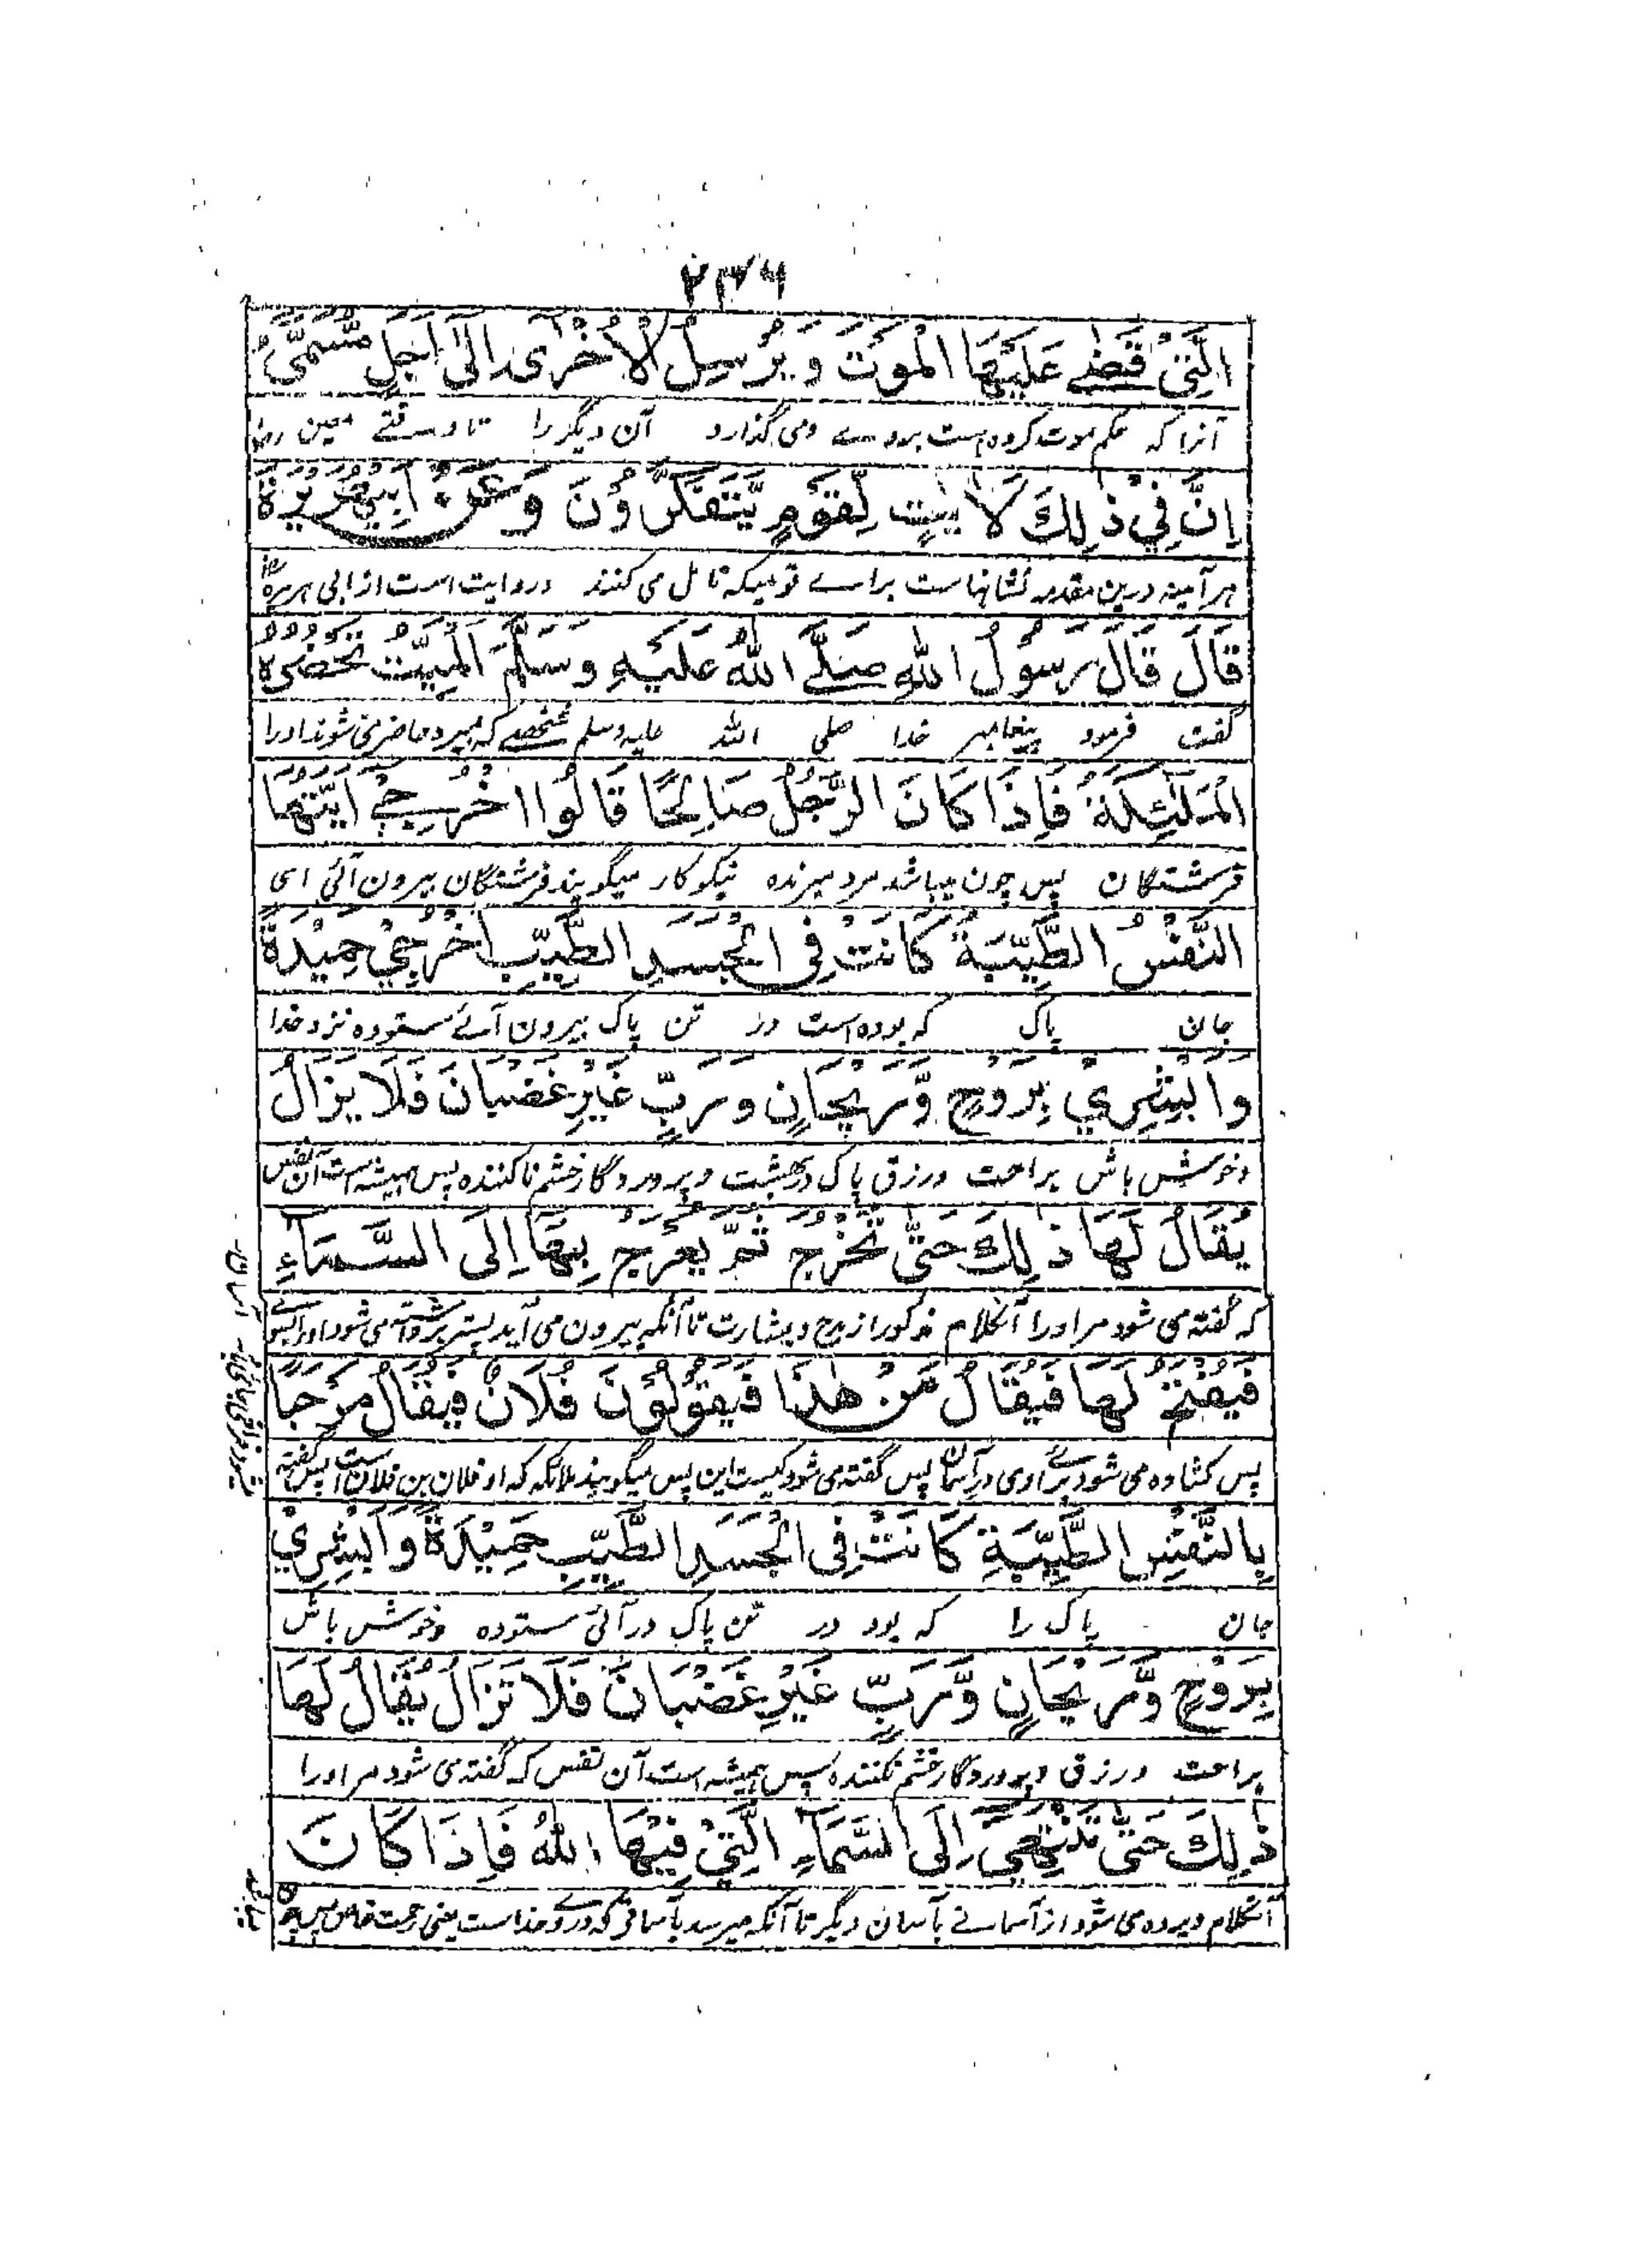 ۲۳۶
الَّتِيْ قَضٰے عَلَيْهَا الْمَوْتَ وَ يُرْسِلُ الْاُخْرٰى اِلٰى اَجَلٍ مُّسَمًّى
آنرا که حکم موت کرده است بروے ومی گذارد آن دیگر را تا وقتے معین
اِنَّ فِيْ ذٰلِكَ لَاٰيٰتٍ لِّقَوْمٍ يَّتَفَكَّرُوْنَ وَ عَنْ اَبِيْ هُرَيْرَةَ
هر آئینه درین مقدمه نشانهاست براے قومیکه تامل می کنند و روایت است از ابی هریره
قَالَ قَالَ رَسُوْلُ اللهِ صَلَّے اللهُ عَلَيْهِ وَسَلَّمَ الْمَيِّتُ تَحْضُرُهُ
گفت فرمود پیغامبر خدا صلی الله علیه وسلم شخصے که بمیرد حاضر می شوند او را
الْمَلٰٓئِكَةُ فَاِذَا كَانَ الرَّجُلُ صَالِحًا قَالُوا اخْرُجِيْ اَيَّتُهَا
فرشتگان پس چون میباشد مرد میرنده نیکو کار میگویند فرشتگان بیرون آئی ای
النَّفْسُ الطَّيِّبَةُ كَانَتْ فِي الْجَسَدِ الطَّيِّبِ اخْرُجِيْ حَمِيْدَةً
جان پاک که بوده است در تن پاک بیرون آئے ستوده نزد خدا
وَ اَبْشِرِيْ بِرَوْحٍ وَّ رَيْحَانٍ وَ رَبٍّ غَيْرِ غَضْبَانَ فَلَا يَزَالُ
و خوش باش براحت و رزق پاک در بهشت و پروردگار خشم ناکننده پس همیشه است آن نفس
يُقَالُ لَهَا ذٰلِكَ حَتّٰى تَخْرُجَ ثُمَّ يُعْرَجُ بِهَا اِلَى السَّمَآءِ
که گفته می شود مر او را آنکلام مذکور از مدح و بشارت تا آنکه بیرون می آید پستر برداشته می شود او را بسوے
فَيُفْتَحُ لَهَا فَيُقَالُ مَنْ هٰذَا فَيَقُوْلُوْنَ فُلَانٌ فَيُقَالُ مَرْحَبًا
پس کشاده می شود برای وی در آسمان پس گفته می شود کیست این پس میگویند ملائکه که او فلان بن فلان است پس گفته
بِالنَّفْسِ الطَّيِّبَةِ كَانَتْ فِي الْجَسَدِ الطَّيِّبِ حَمِيْدَةً وَ اَبْشِرِيْ
جان پاک را که بود در تن پاک در آئی ستوده و خوش باش
بِرَوْحٍ وَّ رَيْحَانٍ وَّ رَبٍّ غَيْرِ غَضْبَانَ فَلَا تَزَالُ يُقَالُ لَهَا
براحت و رزق و پروردگار خشم نکننده پس همیشه است آن نفس که گفته می شود مر او را
ذٰلِكَ حَتّٰى تَنْتَهِيَ اِلَى السَّمَآءِ الَّتِيْ فِيْهَا اللهُ فَاِذَا كَانَ
آنکلام و برده می شود از آسمانے بآسمان دیگر تا آنکه میرسد بآسمانی که در وے خداست یعنی رحمت خاص